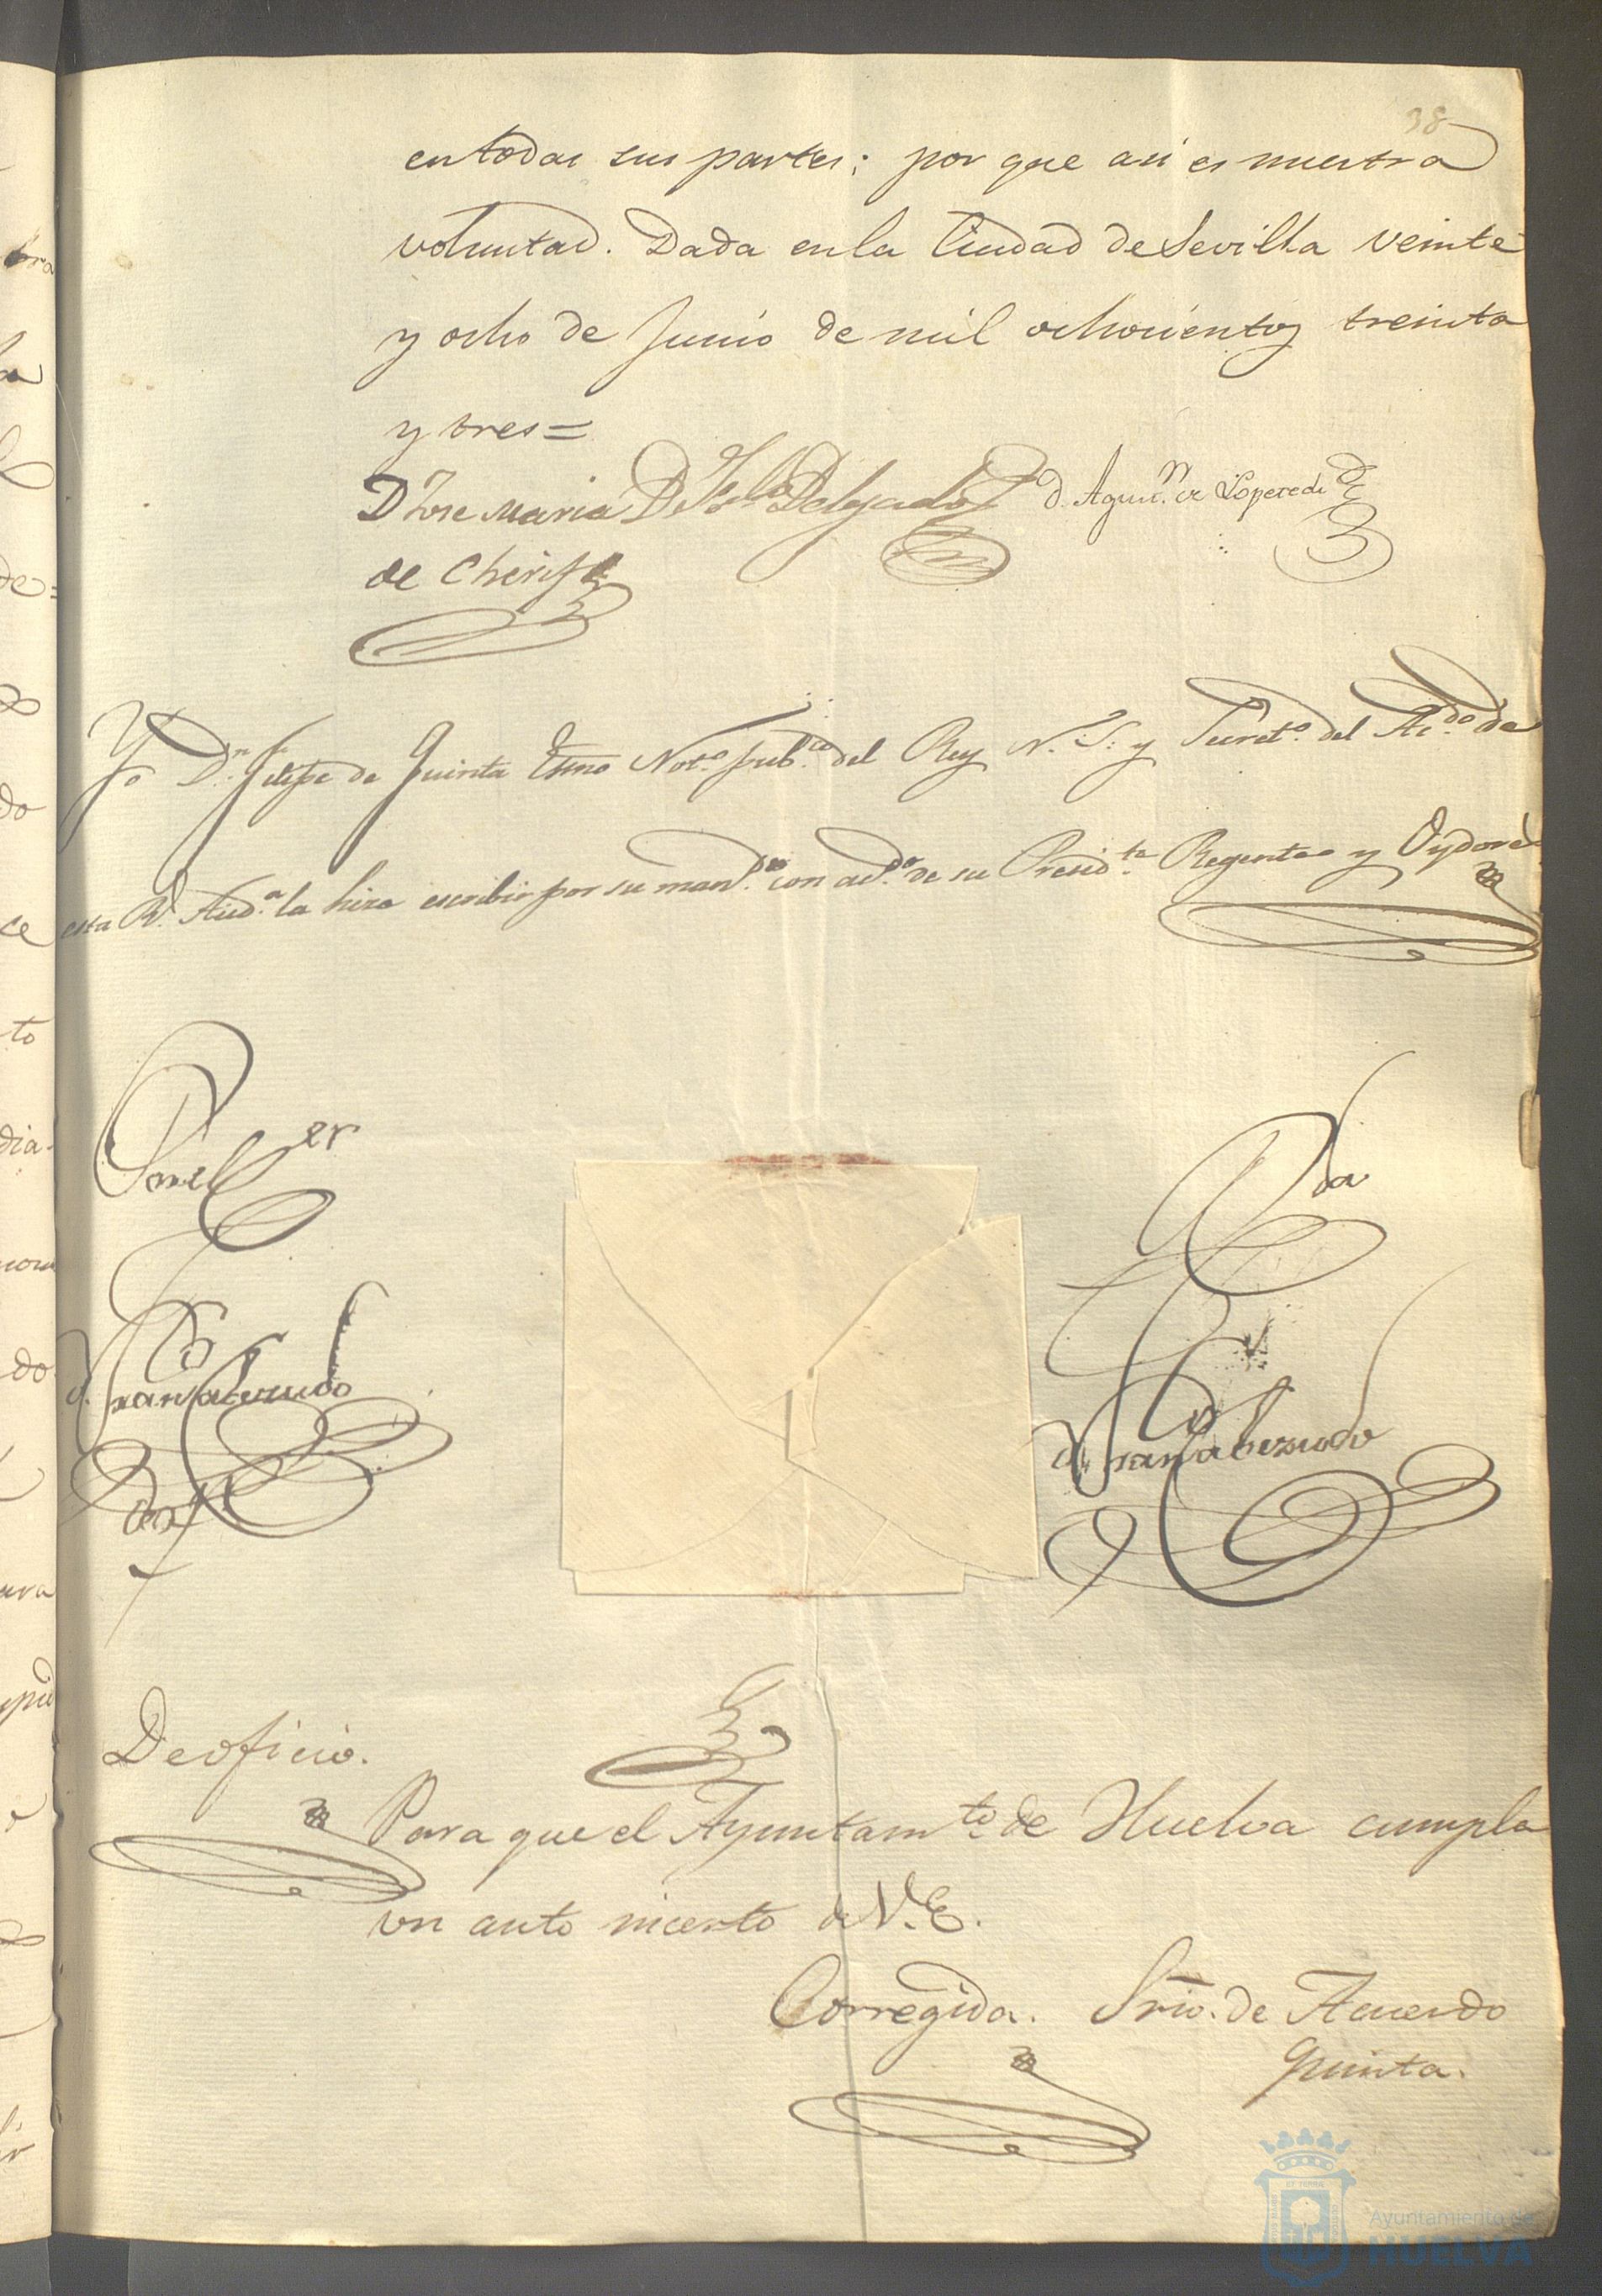 38
en todas sus partes; por que asi es nuestra
voluntad. Dada en la Ciudad de Sevilla veinte
y ocho de Junio de mil ochocientos treinta
y tres=
Dn Jose Maria D. Fco Delgado D. Agustn. de Loperedi
de Cherif
Yo Dn. Felipe de Quinta Esno Noto. pubco. del Rey N. S. y Secreto. del Acdo. de
esta Rl. Auda. la hize escribir por su mando. con acdo. de su Presidte. Regente y Oydores
Rda
D. Fran Cabezudo
D. Fran Cabezudo
De oficio.
Para que el Ayuntamto. de Huelva cumpla
un auto incerto de V. E.
Corregida. Srio. de Acuerdo
Quinta.
Ayuntamiento de
HUELVA